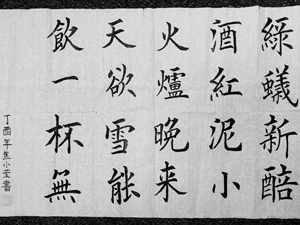 綠蟻新醅
酒紅泥小
火爐晚来
天欲雪能
飲一杯無
丁酉年生小雯書